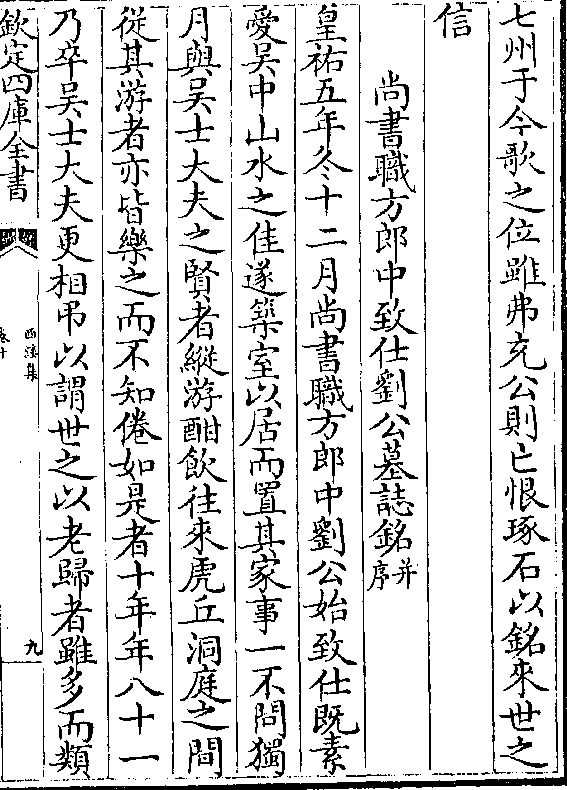 七州于今歌之位雖弗充公則亡恨琢石以銘來世之
信
尚書職方郎中致仕劉公墓誌銘并序
皇祐五年冬十二月尚書職方郎中劉公始致仕既素
愛吳中山水之佳遂築室以居而置其家事一不問獨
月與吳士大夫之賢者縱游酣飲往來虎丘洞庭之間
從其游者亦皆樂之而不知倦如是者十年年八十一
乃卒吳士大夫更相弔以謂世之以老歸者雖多而類
欽定四庫全書
西溪集
卷十
九